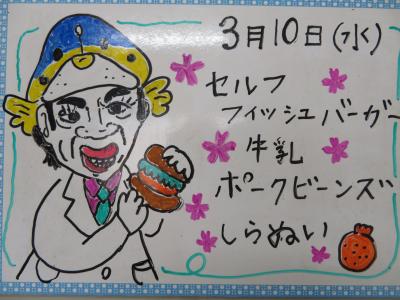 3月10日(水)
セルフ
フィッシュバーガー
牛乳
ポークビーンズ
しらぬい